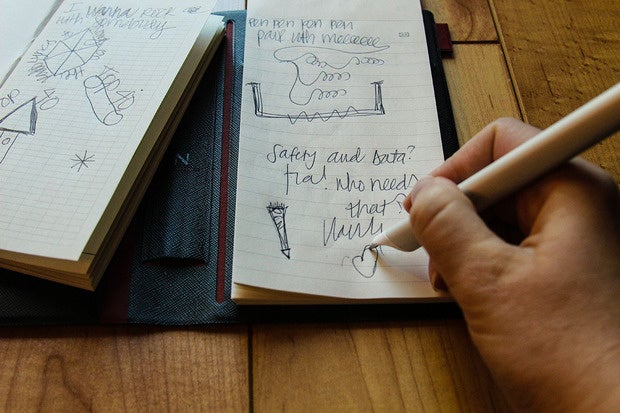 I wanna rock
with somebody
pen pen pen pen
pair with meeeeeee
Safety and Data?
who needs
that?
N